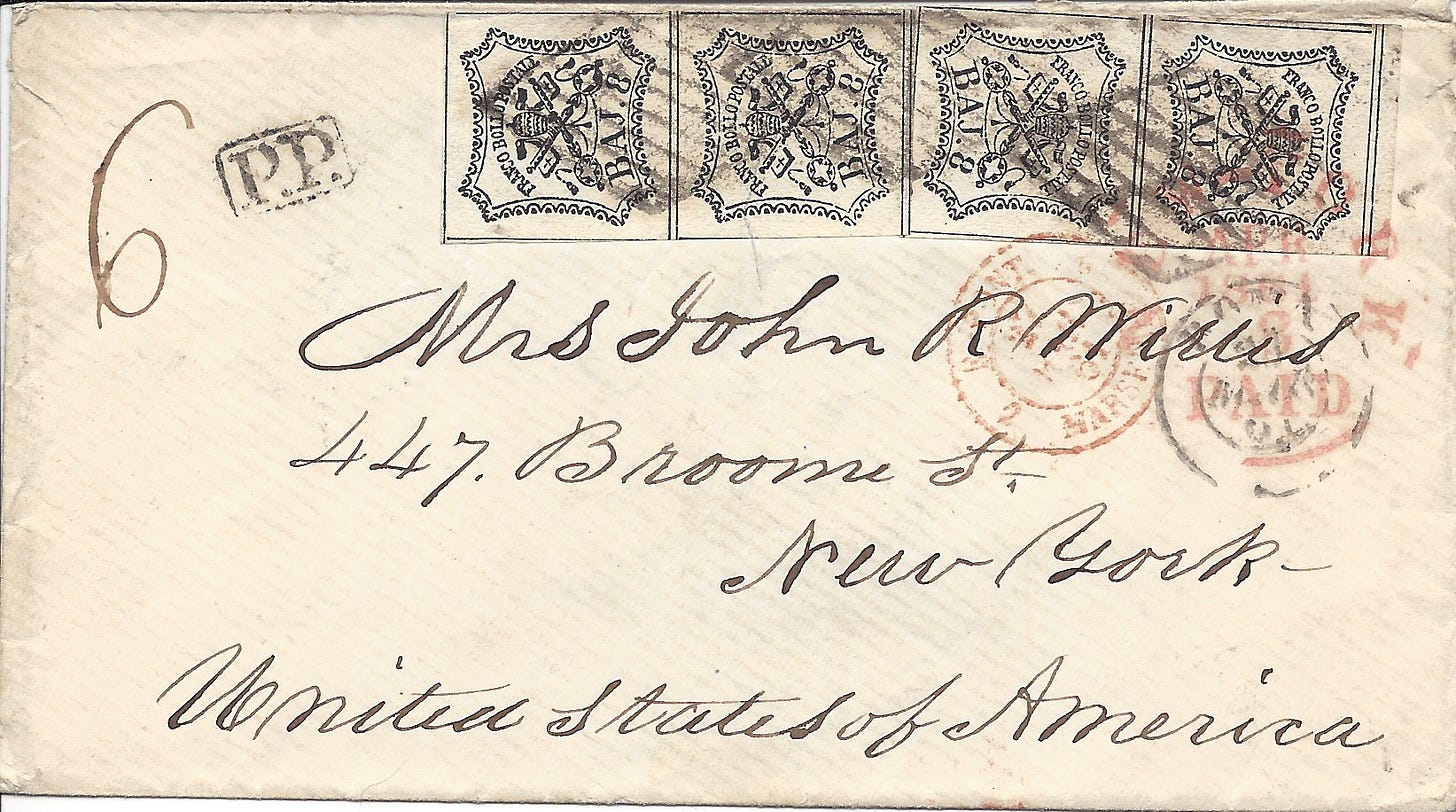 FRANCO BOLLO POSTALE BAJ. 8
FRANCO BOLLO POSTALE BAJ. 8
BAJ. 8 FRANCO BOLLO POSTALE
BAJ. 8 FRANCO BOLLO POSTALE
6
P.P.
Mrs John R Willis
PAID
2 MARS
447. Broome St.
New York
United States of America